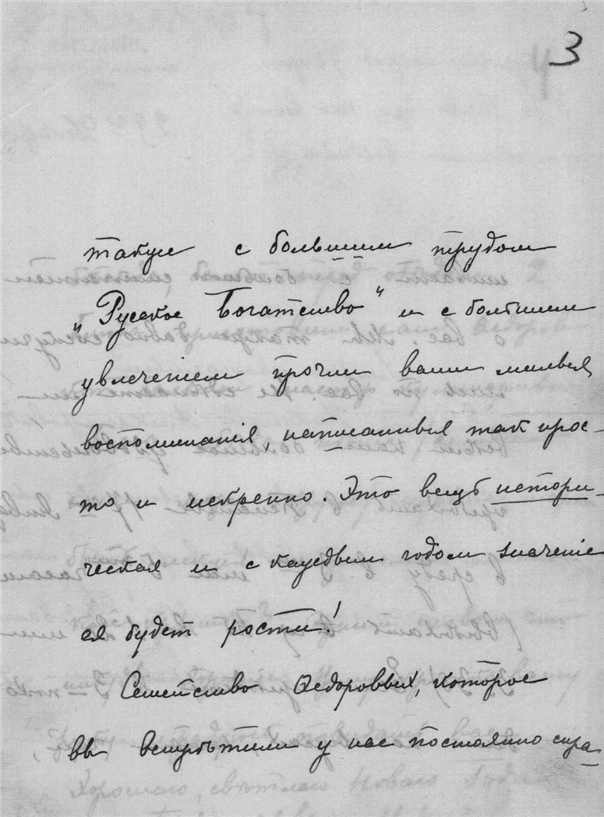 3
такую с большим трудом
„Русское Богатство" и с большим
увлеченіем прочли ваши милыя
воспоминанія, написанныя так прос-
то и искренно. Это вещь истори-
ческая и с каждым годом значеніе
ея будет рости!
Семейство Ѳедоровых, которое
вы встрѣтили у нас постоянно спра-